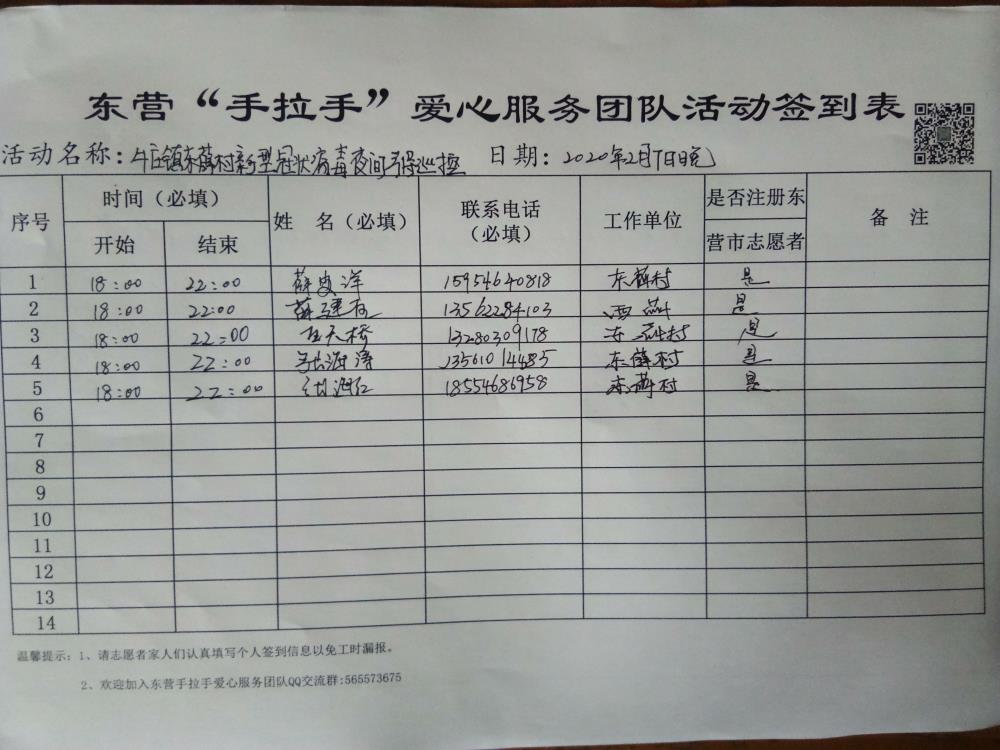 东营“手拉手”爱心服务团队活动签到表
活动名称：牛庄镇东薛村新型冠状病毒夜间 巡控 日期：2020年2月7日晚
序号 时间（必填） 姓 名（必填） 联系电话（必填） 工作单位 是否注册东营市志愿者 备 注
开始 结束
1 18:00 22:00 薛 洋 15954640818 东薛村 是
2 18:00 22:00 薛建 13562284103 西 是
3 18:00 22:00 王天桥 13280309178 东 村 是
4 18:00 22:00 张海涛 13561014485 东薛村 是
5 18:00 22:00 18554686958 东薛村 是
6
7
8
9
10
11
12
13
14
温馨提示：1、请志愿者家人们认真填写个人签到信息以免工时漏报。
2、欢迎加入东营手拉手爱心服务团队QQ交流群:565573675